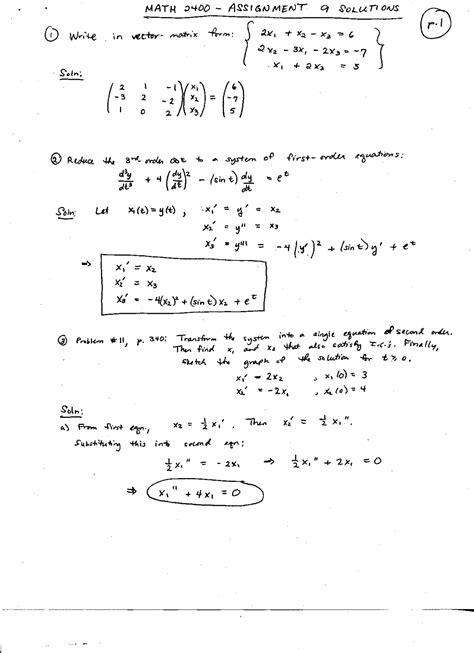 MATH 2400 - ASSIGNMENT 9 SOLUTIONS
p.1
① Write in vector-matrix form: { 2x₁ + x₂ - x₃ = 6
2x₂ - 3x₁ - 2x₃ = -7
x₁ + 2x₃ = 5 }
Soln:
( 2 1 -1 ) ( x₁ ) ( 6 )
( -3 2 -2 ) ( x₂ ) = ( -7 )
( 1 0 2 ) ( x₃ ) ( 5 )
② Reduce the 3rd order ODE to a system of first-order equations:
d³y/dt³ + 4(dy/dt)² - (sin t) dy/dt = eᵗ
Soln: Let x₁(t) = y(t), x₁' = y' = x₂
x₂' = y'' = x₃
x₃' = y''' = -4(y')² + (sin t) y' + eᵗ
⇒ x₁' = x₂
x₂' = x₃
x₃' = -4(x₂)² + (sin t) x₂ + eᵗ
③ Problem #11, p. 340: Transform the system into a single equation of second order.
Then find x₁ and x₂ that also satisfy I.C.s. Finally,
sketch the graph of the solution for t ≥ 0.
x₁' = 2x₂ , x₁(0) = 3
x₂' = -2x₁ , x₂(0) = 4
Soln:
a) From first eqn, x₂ = ½x₁'. Then x₂' = ½x₁''.
Substituting this into second eqn:
½x₁'' = -2x₁ ⇒ ½x₁'' + 2x₁ = 0
⇒ x₁'' + 4x₁ = 0